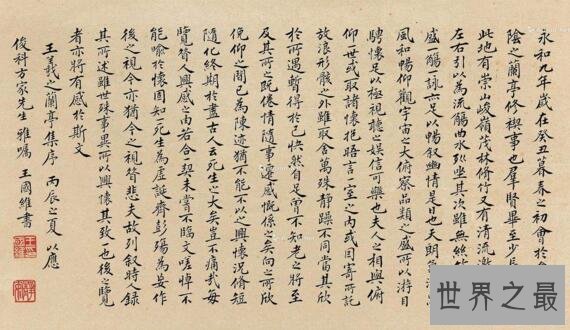 永和九年歲在癸丑暮春之初會於
陰之蘭亭修禊事也羣賢畢至少長
此地有崇山峻嶺茂林脩竹又有清流激
左右引以為流觴曲水列坐其次雖無絲
盛一觴一詠亦足以暢叙幽情是日也天朗
風和暢仰觀宇宙之大俯察品類之盛所以游目
騁懷足以極視聽之娛信可樂也夫人之相與俯
仰一世或取諸懷抱晤言一室之內或因寄所託
放浪形骸之外雖取舍萬殊靜躁不同當其欣
於所遇暫得於己快然自足曾不知老之將至
及其所之既倦情隨事遷感慨係之矣向之所欣
俛仰之間已為陳迹猶不能不以之興懷況脩短
隨化終期於盡古人云死生亦大矣豈不痛哉每
覽昔人興感之由若合一契未嘗不臨文嗟悼不
能喻於懷固知死生為虛誕齊彭殤為妄作
後之視今亦猶今之視昔悲夫故列叙時人錄
其所述雖世殊事異所以興懷其致一也後之覽
者亦將有感於斯文
王羲之蘭亭集序 丙辰之夏 以應
俊科方家先生 雅囑 王國維書
世界之最